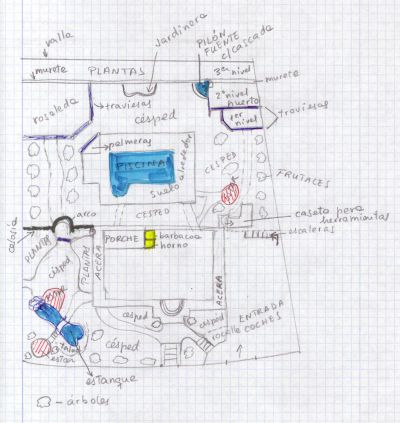 valla
jardinera
PILÓN
FUENTE
c/cascada
murete
PLANTAS
3er nivel
murete
rosaleda
traviesas
césped
2º nivel
huerto
1er nivel
traviesas
palmeras
PISCINA
suelo alrededor
CESPED
FRUTALES
arco
CESPED
caseta para
herramientas
escaleras
PLANTAS
césped
PLANTAS
ACERA
PORCHE
barbacoa
horno
ACERA
césped
césped
rocalla
ENTRADA
COCHES
césped
estar
estanque
- árboles